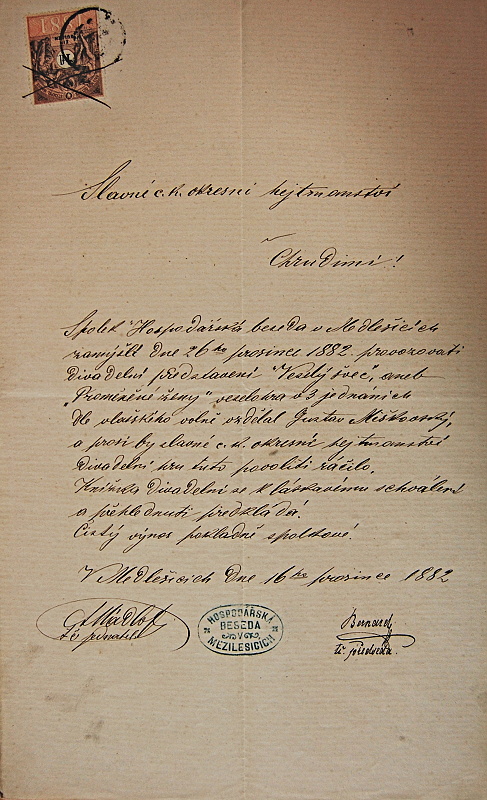 1881
Slavné c. k. okresní hejtmanství
v
Chrudimi!
Spolek "Hospodářská beseda v Medlešicích
zamýšlí dne 26ho prosince 1882. provozovati
divadelní představení "Veselý švec", aneb
"Proměněné ženy" veselohra o 3 jednáních
dle vlašského volně vzdělal Gustav Miškovský,
a prosí by slavné c. k. okresní hejtmanství
divadelní hru tuto povoliti ráčilo.
Knížka divadelní se k láskavému schválení
a přehlednutí předkládá.
Čistý výnos pokladně spolkové.
V Medlešicích dne 16ho prosince 1882
t. č. jednatel
HOSPODÁŘSKÁ
BESEDA
V
MEZILESICÍCH
t. č. předseda.